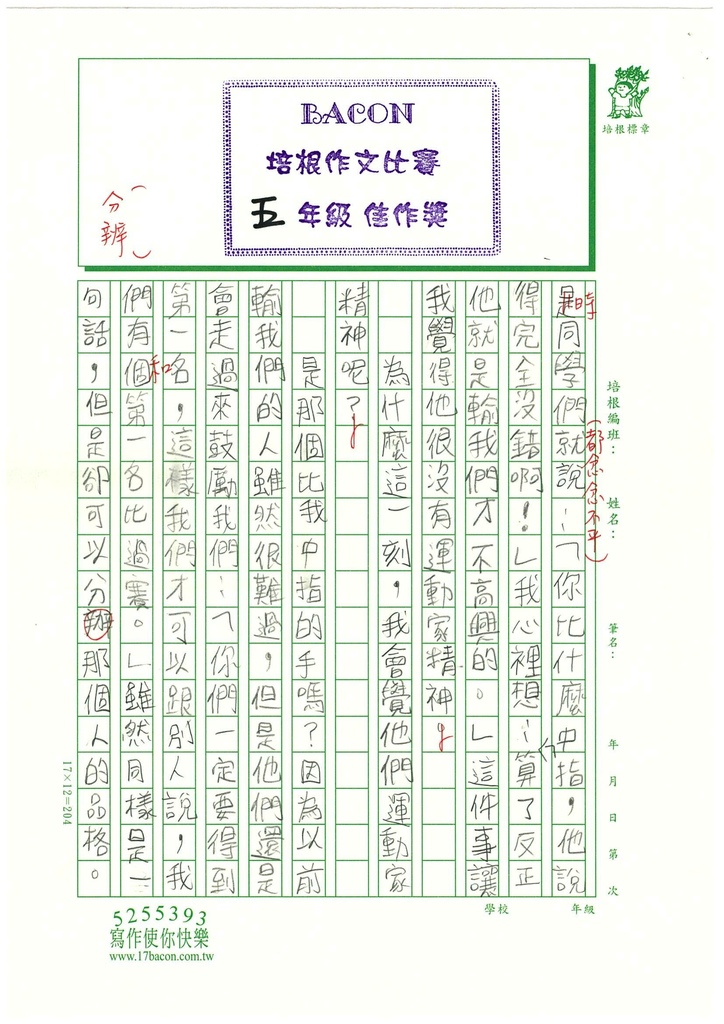 BACON
培根作文比賽
五年級 佳作獎
培根標章
(分辨)
培根編班：
姓名：
筆名：
年 月 日 第 次
(都忿忿不平)
時
是同學們就說：「你比什麼中指，他說
得完全沒錯啊！」我心裡想：「算了反正
他就是輸我們才不高興的。」這件事讓
我覺得他很沒有運動家精神。
為什麼這一刻，我會覺他們運動家
精神呢？
是那個比我中指的手嗎？因為以前
輸我們的人雖然很難過，但是他們還是
會走過來鼓勵我們：「你們一定要得到
第一名，這樣我們才可以跟別人說，我
和
們有個第一名比過賽。」雖然同樣是一
句話，但是卻可以分辨那個人的品格。
17×12=204
學校
年級
5255393
寫作使你快樂
www.17bacon.com.tw